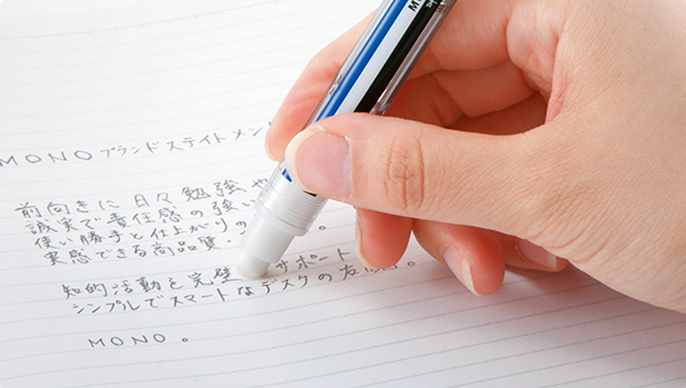 MONO
MONOブランドステイトメン
前向きに日々勉強や
誠実で責任感の強い
使い勝手と仕上がりの
実感できる高品質・
知的活動を完璧サポート
シンプルでスマートなデスクの右
MONO。